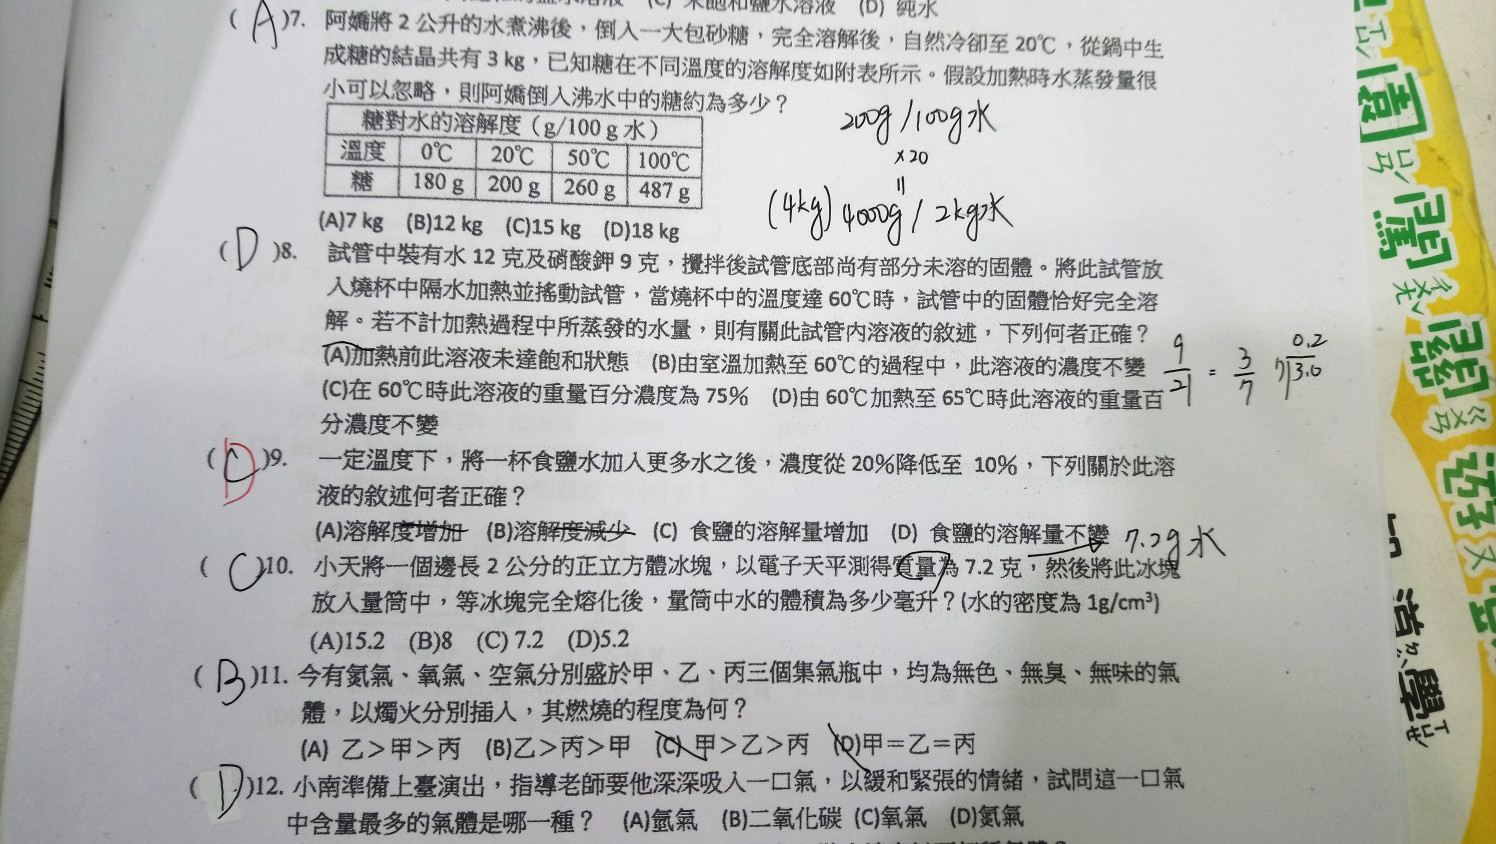 (C) 未飽和鹽水溶液 (D) 純水
(A)7. 阿嬌將 2 公升的水煮沸後，倒入一大包砂糖，完全溶解後，自然冷卻至 20℃，從鍋中生
成糖的結晶共有 3 kg，已知糖在不同溫度的溶解度如附表所示。假設加熱時水蒸發量很
小可以忽略，則阿嬌倒入沸水中的糖約為多少？
糖對水的溶解度（g/100 g 水）
溫度 0℃ 20℃ 50℃ 100℃
糖 180 g 200 g 260 g 487 g
200g/100g水
×20
=
(4kg) 4000g/2kg水
(A)7 kg (B)12 kg (C)15 kg (D)18 kg
(D)8. 試管中裝有水 12 克及硝酸鉀 9 克，攪拌後試管底部尚有部分未溶的固體。將此試管放
入燒杯中隔水加熱並搖動試管，當燒杯中的溫度達 60℃時，試管中的固體恰好完全溶
解。若不計加熱過程中所蒸發的水量，則有關此試管內溶液的敘述，下列何者正確？
(A)加熱前此溶液未達飽和狀態 (B)由室溫加熱至 60℃的過程中，此溶液的濃度不變
(C)在 60℃時此溶液的重量百分濃度為 75% (D)由 60℃加熱至 65℃時此溶液的重量百
分濃度不變
9/21 = 3/7 0.2
7)3.0
(D)9. 一定溫度下，將一杯食鹽水加入更多水之後，濃度從 20%降低至 10%，下列關於此溶
液的敘述何者正確？
(A)溶解度增加 (B)溶解度減少 (C) 食鹽的溶解量增加 (D) 食鹽的溶解量不變
7.2g水
(C)10. 小天將一個邊長 2 公分的正立方體冰塊，以電子天平測得質量為 7.2 克，然後將此冰塊
放入量筒中，等冰塊完全熔化後，量筒中水的體積為多少毫升？(水的密度為 1g/cm³)
(A)15.2 (B)8 (C) 7.2 (D)5.2
(B)11. 今有氮氣、氧氣、空氣分別盛於甲、乙、丙三個集氣瓶中，均為無色、無臭、無味的氣
體，以燭火分別插入，其燃燒的程度為何？
(A) 乙＞甲＞丙 (B)乙＞丙＞甲 (C) 甲＞乙＞丙 (D)甲＝乙＝丙
(D)12. 小南準備上臺演出，指導老師要他深深吸入一口氣，以緩和緊張的情緒，試問這一口氣
中含量最多的氣體是哪一種？ (A)氬氣 (B)二氧化碳 (C)氧氣 (D)氮氣
闖
關
遊
學